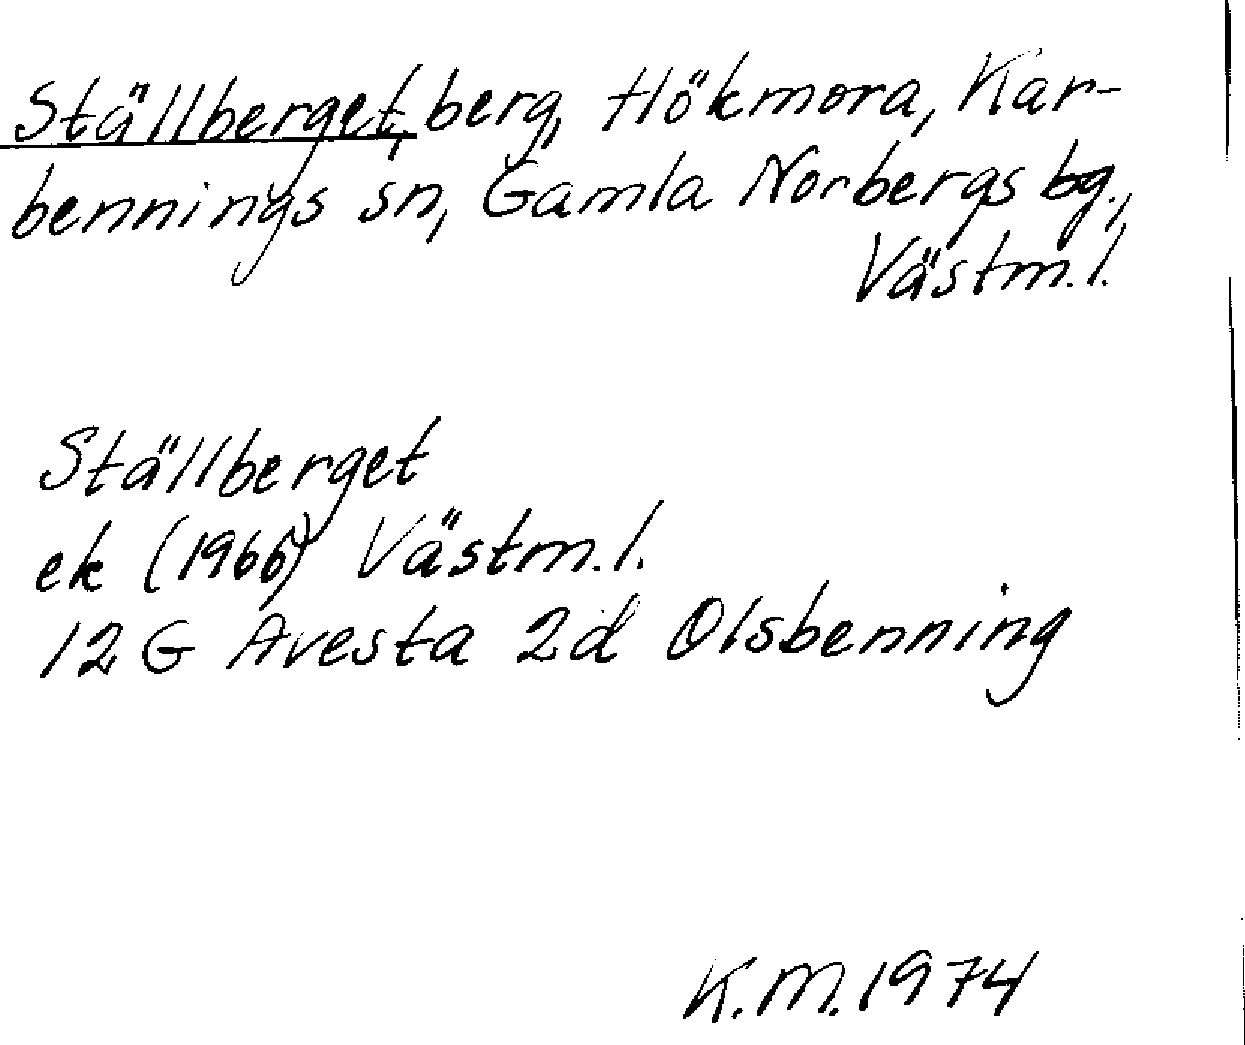 Ställberget, berg, Hökmora, Kar-
bennings sn, Gamla Norbergs bg.,
Västm.l.
Ställberget
ek (1966) Västm.l.
12 G Avesta 2d Olsbenning
K.M. 1974